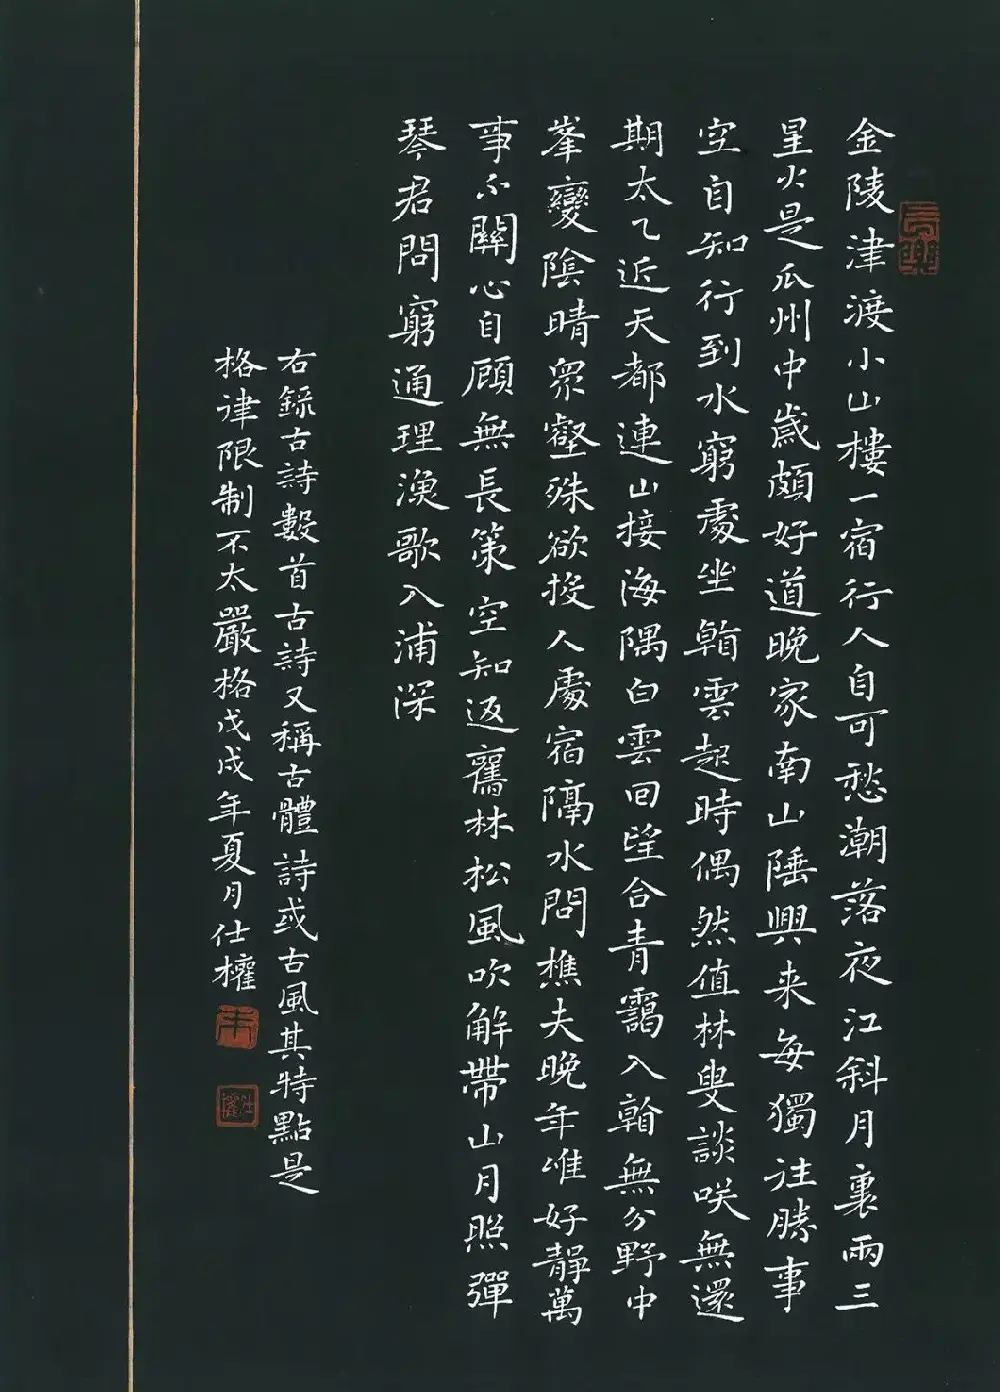 金陵津渡小山樓一宿行人自可愁潮落夜江斜月裏兩三
星火是瓜州中歲頗好道晚家南山陲興来每獨往勝事
空自知行到水窮處坐看雲起時偶然值林叟談咲無還
期太乙近天都連山接海隅白雲回望合青靄入看無分野中
峯變陰晴眾壑殊欲投人處宿隔水問樵夫晚年唯好靜萬
事不關心自顧無長策空知返舊林松風吹解帶山月照彈
琴君問窮通理漁歌入浦深
右録古詩數首古詩又稱古體詩或古風其特點是
格律限制不太嚴格戊戌年夏月仕權